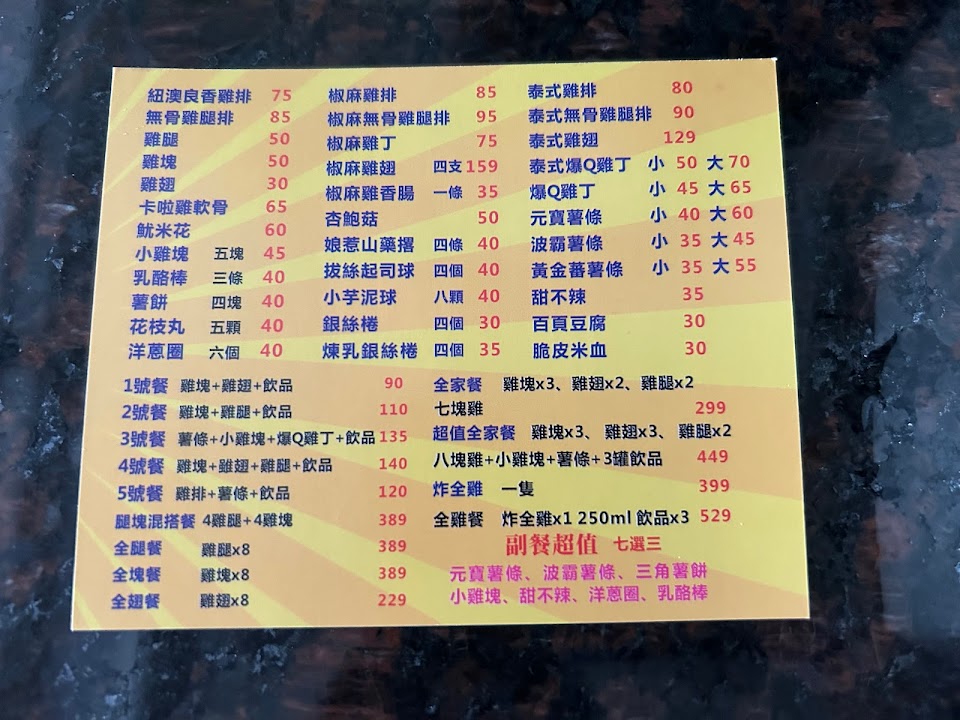 紐澳良香雞排 75
無骨雞腿排 85
雞腿 50
雞塊 50
雞翅 30
卡啦雞軟骨 65
魷米花 60
小雞塊 五塊 45
乳酪棒 三條 40
薯餅 四塊 40
花枝丸 五顆 40
洋蔥圈 六個 40
椒麻雞排 85
椒麻無骨雞腿排 95
椒麻雞丁 75
椒麻雞翅 四支 159
椒麻雞香腸 一條 35
杏鮑菇 50
娘惹山藥撂 四條 40
拔絲起司球 四個 40
小芋泥球 八顆 40
銀絲棬 四個 30
煉乳銀絲棬 四個 35
泰式雞排 80
泰式無骨雞腿排 90
泰式雞翅 129
泰式爆Q雞丁 小 50 大 70
爆Q雞丁 小 45 大 65
元寶薯條 小 40 大 60
波霸薯條 小 35 大 45
黃金蕃薯條 小 35 大 55
甜不辣 35
百頁豆腐 30
脆皮米血 30
1號餐 雞塊+雞翅+飲品 90
2號餐 雞塊+雞腿+飲品 110
3號餐 薯條+小雞塊+爆Q雞丁+飲品 135
4號餐 雞塊+雞翅+雞腿+飲品 140
5號餐 雞排+薯條+飲品 120
腿塊混搭餐 4雞腿+4雞塊 389
全腿餐 雞腿x8 389
全塊餐 雞塊x8 389
全翅餐 雞翅x8 229
全家餐 雞塊x3、雞翅x2、雞腿x2
七塊雞 299
超值全家餐 雞塊x3、雞翅x3、雞腿x2
八塊雞+小雞塊+薯條+3罐飲品 449
炸全雞 一隻 399
全雞餐 炸全雞x1 250ml 飲品x3 529
副餐超值 七選三
元寶薯條、波霸薯條、三角薯餅
小雞塊、甜不辣、洋蔥圈、乳酪棒